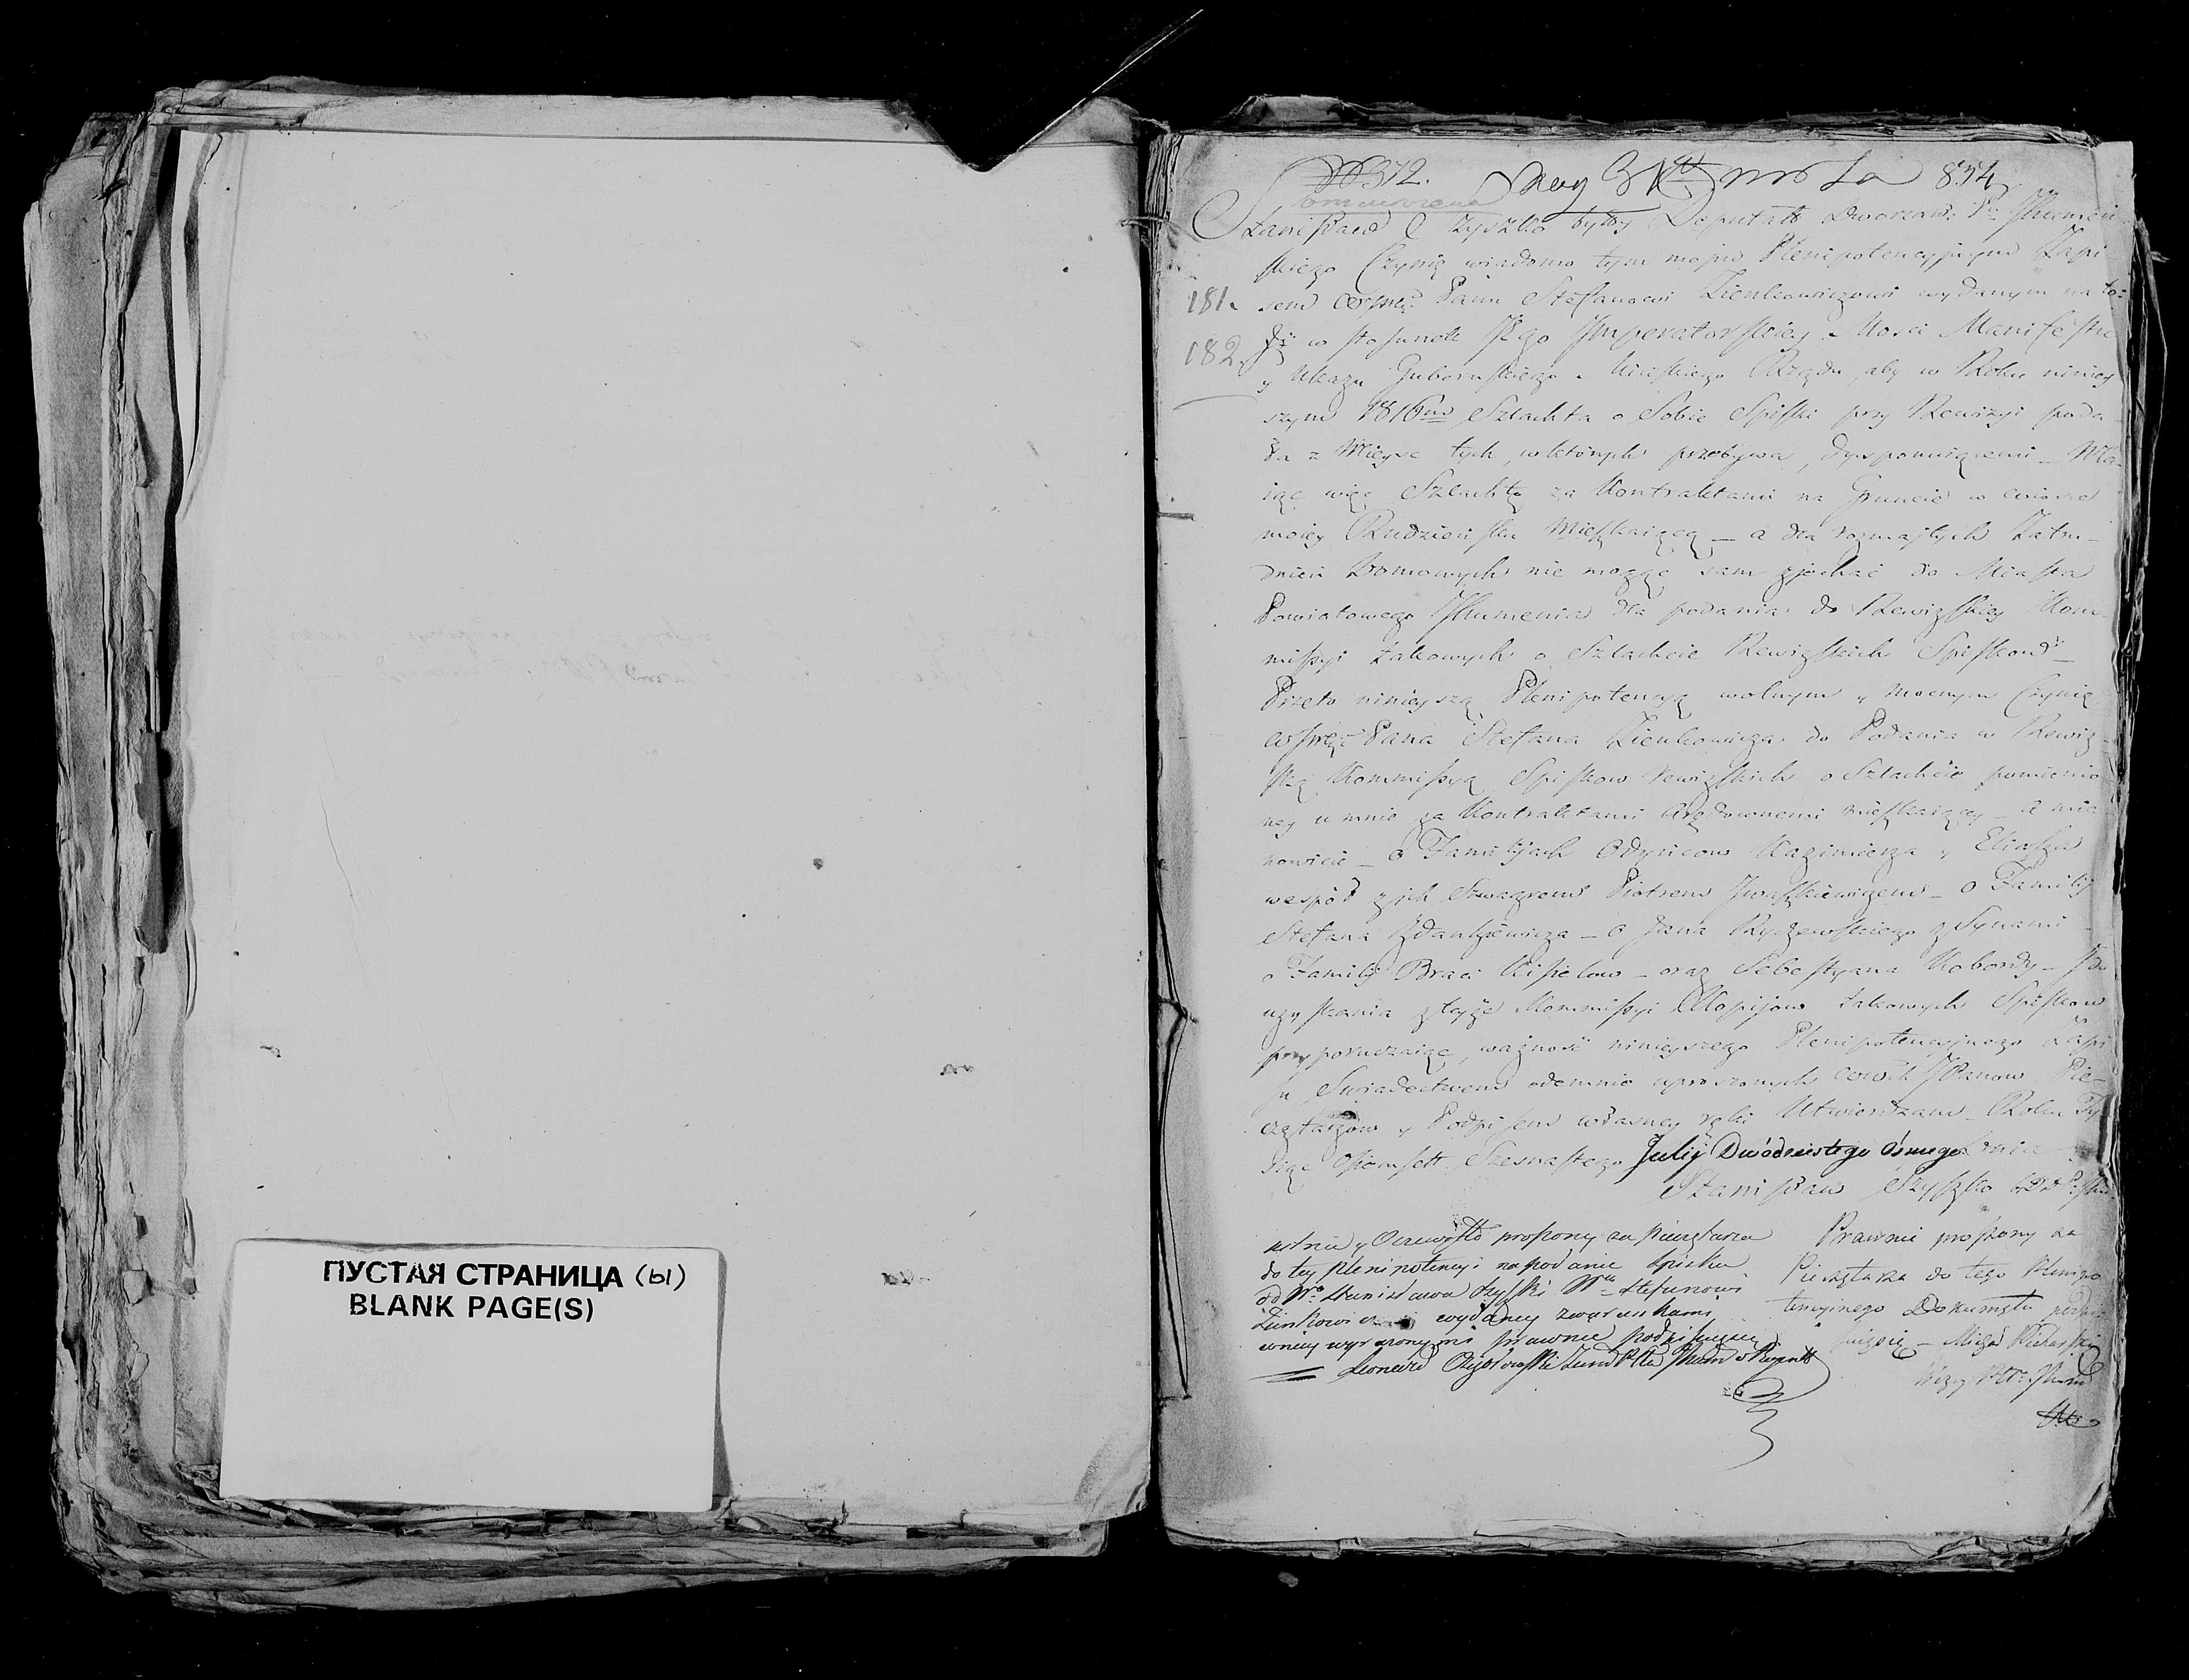 ПУСТАЯ СТРАНИЦА (Ы)
BLANK PAGE(S)
372. 834
Stanisław Szyszko były Deputat Dworzań: Pu Ihumeń
skiego Czynię wiadomo tym moim Plenipotencyjnym Zapi
181. sem Panu Stefanowi Zienkowiczowi wydanym na to:
182 Iż w stosunek Jego Imperatorskiey Mości Manifestu
y Ukazu Gubernskiego Mińskiego Rządu, aby w Roku niniey
szym 1816m Szlachta o Sobie Spiski przy Rewizyi poda
ła z Mieysc tych, w których przebywa, Ma
iąc więc Szlachtę za Kontraktami na Gruncie w
moiey Rudzieńsku Mieszkaiącą _ a dla rozmajtych Zatru_
dnień Domowych nie mogąc sam zjechać do Miasta
Powiatowego Ihumenia dla podania do Rewizskiey Kom
missyi takowych o Szlachcie Rewizskich Spiskow _
Przeto ninieyszą Plenipotencyą wolnym y mocnym Czynię
Pana Stefana Zienkowicza do Podania w Rewiz
ską Kommissyą Spiskow Rewizskich o Szlachcie pomienio
ney u mnie za Kontraktami Arędownemi mieszkaiącey _ a mia
nowicie _ o Familijach Odyńcow Kazimierza y Eliasza
wespół z jich Szwagrem Piotrem Iwaszkiewiczem _ o Familij
Stefana Zdankiewicza _ o Jana Ryczewskiego z Synami _
o Familij Braci Kisielow _ oraz Sebestyana Kobordy _ I do
uzyskania z teyże Kommissyi Kopijow takowych Spiskow
przyporuczaiąc, ważność ninieyszego Plenipotencyjnego Zapi
su Swiadectwem odemnie uproszonych JPanow Pie_
czętarzow y Podpisem własney ręki Utwierdzam _ Roku Ty
siąc Osiemset Szesnastego Julij Dwódziestego Ósmego dnia
Stanisław Szyszko
ustnie y Oczewisto proszony za Pieczętarza
do tey Plenipotencyi na podanie Spisku
od Wo Stanisława Szyszki Wu Stefanowi
Zienkowiczowi wydaney z warunkami
w niey wyrażonymi prawnie podpisuję
Leonard
Prawnie proszony za
Pieczętarza do tego Plenipo
tencyinego Dokumętu podpi
suięsię _